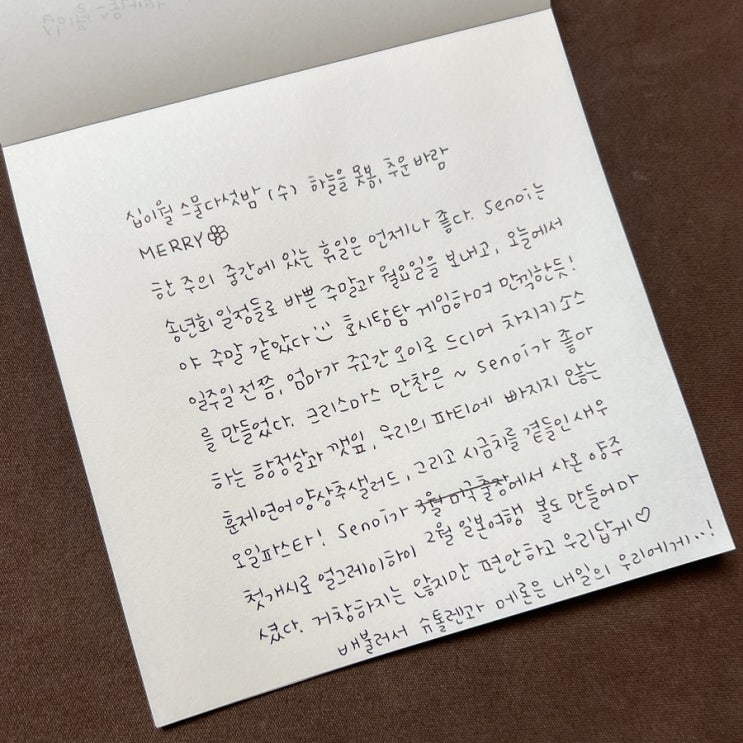 십이월 스물다섯밤 (수) 하늘을 못봄, 추운 바람
MERRY
한 주의 중간에 있는 휴일은 언제나 좋다. Senoi는
송년회 일정들로 바쁜 주말과 월요일을 보내고, 오늘에서
야 주말 같았다 호시탐탐 게임하며 만끽한듯!
일주일 전쯤, 엄마가 주고간 오이로 드디어 차지키소스
를 만들었다. 크리스마스 만찬은 ~ Senoi가 좋아
하는 항정살과 깻잎, 우리의 파티에 빠지지 않는
훈제연어양상추샐러드, 그리고 시금치를 곁들인 새우
오일파스타! Senoi가 3월 미국출장에서 사온 양주
2월 일본여행
첫개시로 얼그레이하이 볼도 만들어마
셨다. 거창하지는 않지만 편안하고 우리답게♡
배불러서 슈톨렌과 메론은 내일의 우리에게..!